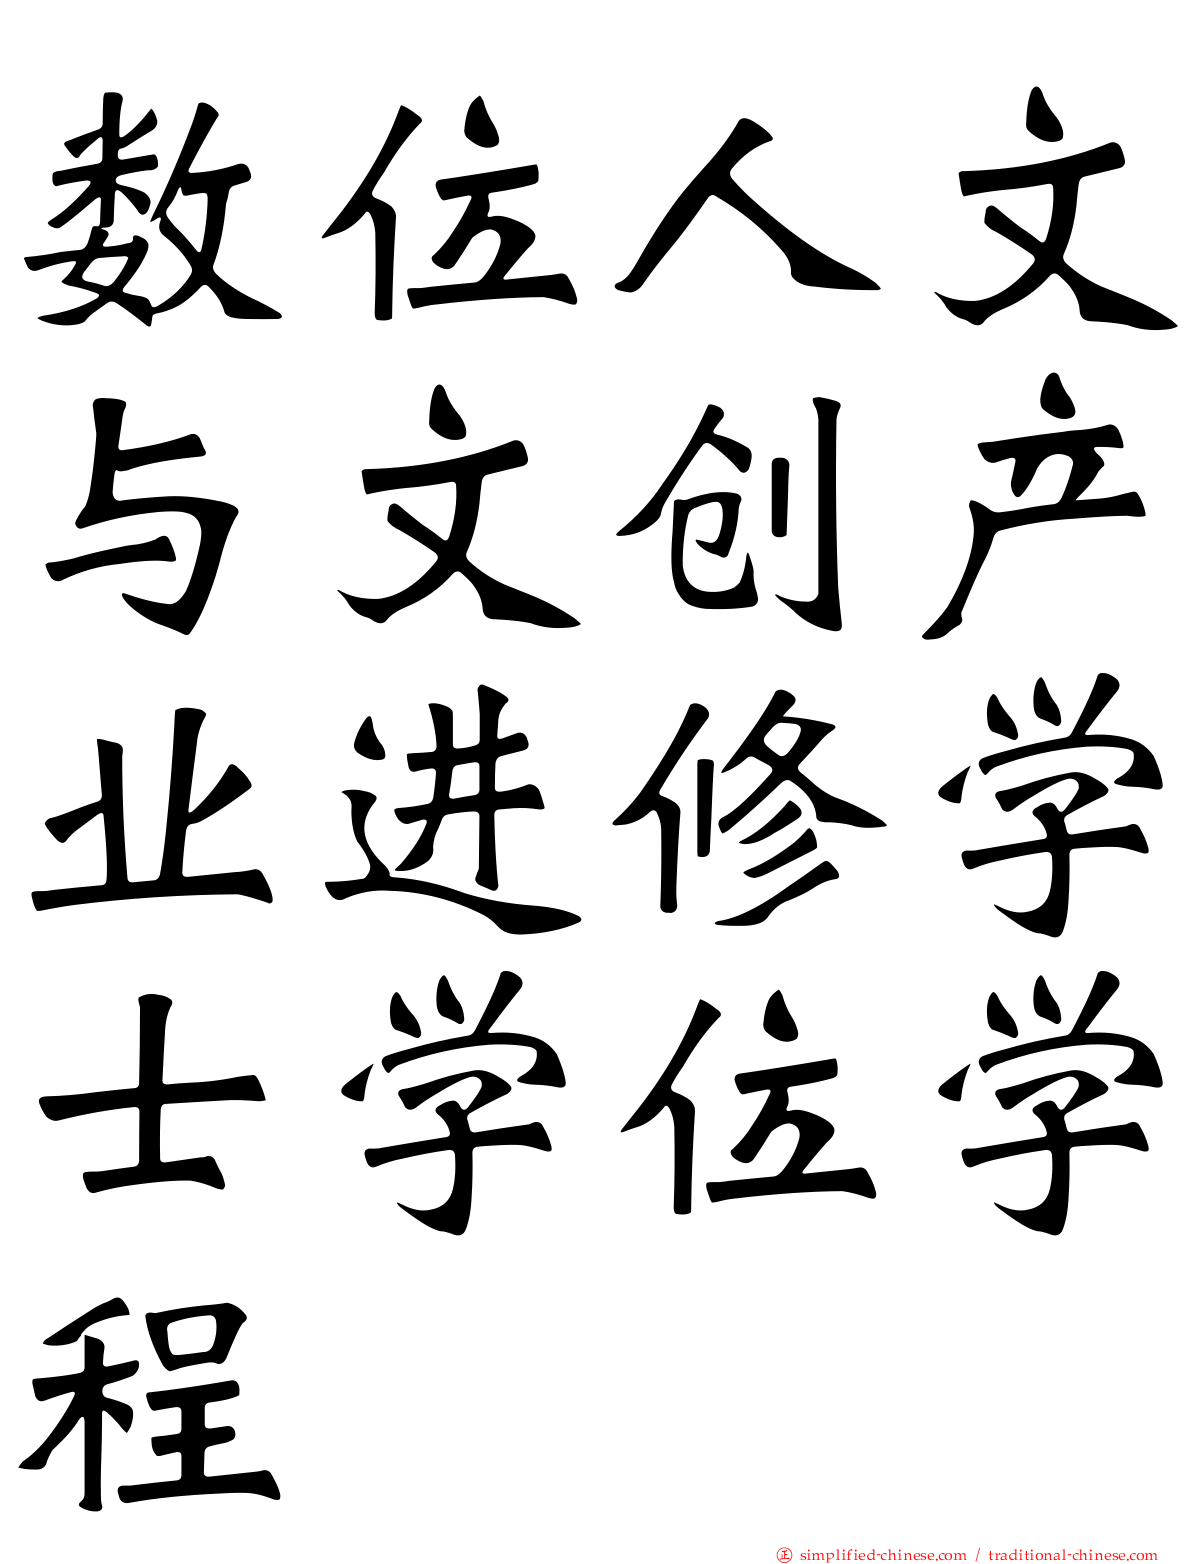 数位人文
与文创产
业进修学
士学位学
程
正 simplified-chinese.com / traditional-chinese.com